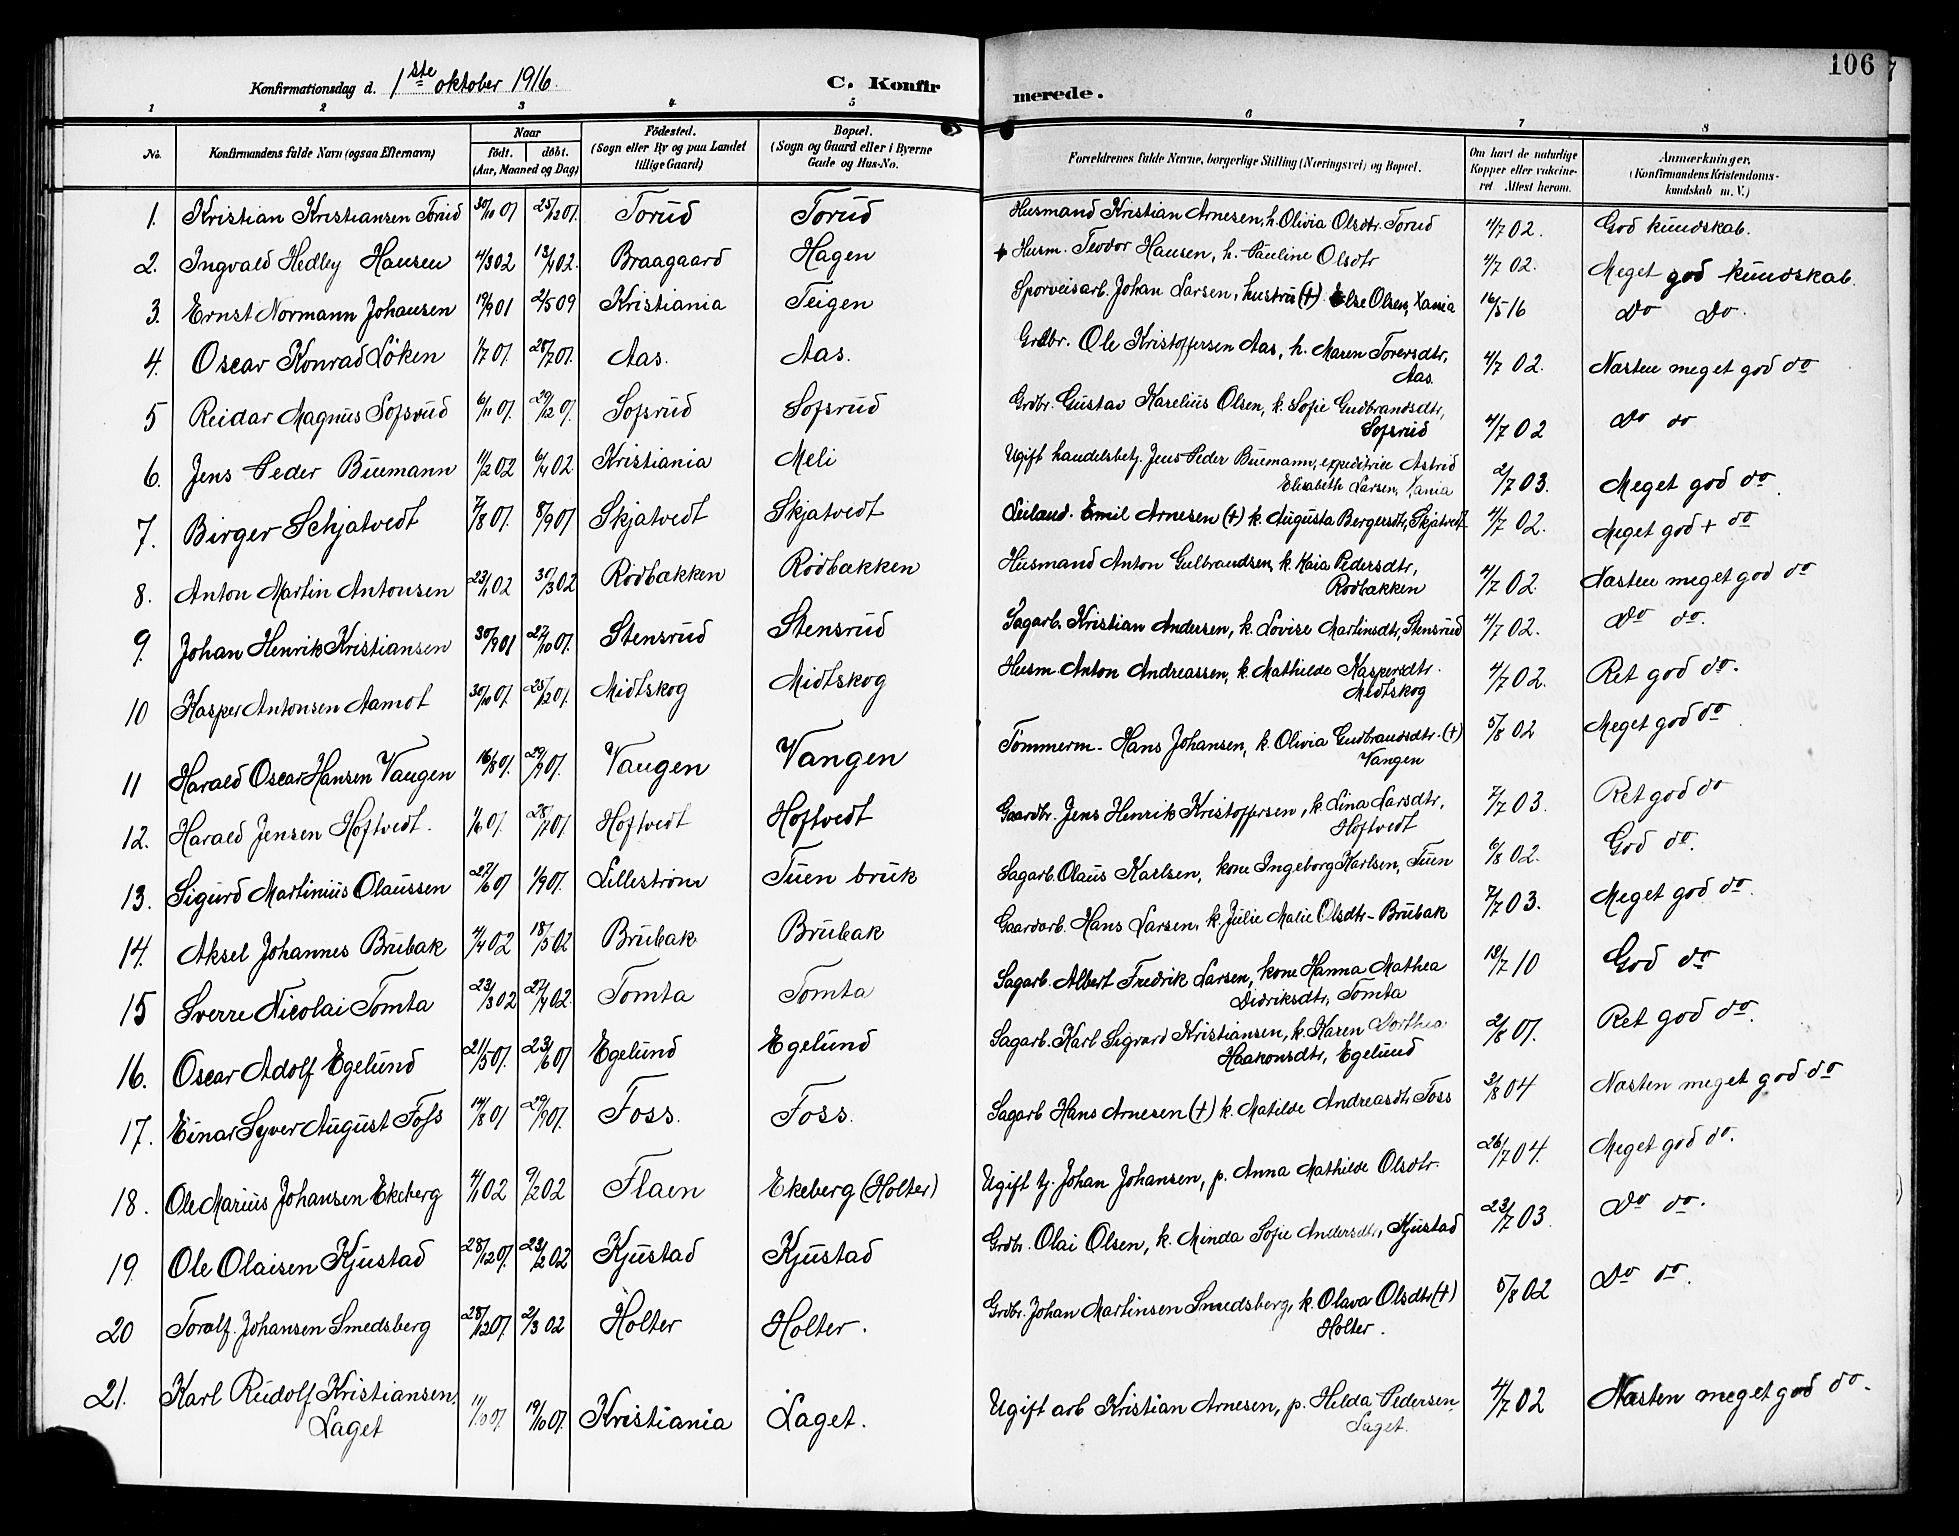 106
Konfirmationsdag d. 1ste oktober 1916. C. Konfirmerede.
1 2 3 4 5 6 7 8
No. Konfirmandens fulde Navn (ogsaa Efternavn) Naar født. døbt. (Aar, Maaned og Dag) Fødested. (Sogn eller By og paa Landet tillige Gaard) Bopæl. (Sogn og Gaard eller i Byerne Gade og Hus-No. Forældrenes fulde Navne, borgerlige Stilling (Næringsvei) og Bopæl. Om havt de naturlige Kopper eller vaccineret. Attest herom. Anmærkninger. (Konfirmandens Kristendomskundskab m. V.)
1. Kristian Kristiansen Torud 30/10 01 25/12 01. Torud Torud Husmand Kristian Arnesen, h. Olivia Olsdtr. Torud 4/7 02. God kundskab.
2. Ingvald Hedley Hansen 4/3 02 13/4 02. Braagaard Hagen Husm. Teodor Hansen, h. Pauline Olsdtr 4/7 02. Meget god kundskab.
3. Ernst Normann Johansen 19/9 01 2/5 09 Kristiania Teigen Sporveisarb. Johan Larsen, hustru (+) Else Olsen, Xania 16/5 16 Do Do.
4. Oscar Konrad Löken 1/7 01. 28/7 01. Aas. Aas. Grdbr. Ole Kristoffersen Aas, h. Maren Torersdtr,
Aas. 4/7 02. Næsten meget god do
5 Reidar Magnus Sofsrud 6/11 01. 29/12 01. Sofsrud Sofsrud Grdbr. Gustav Karelius Olsen, k. Sofie Gudbrandsdtr,
Sofsrud 4/7 02 do do
6. Jens Peder Buemann 11/2 02 6/4 02. Kristiania Meli Ugift handelsbetj. Jens Peder Buemann, expeditrice Astrid
Elisabeth Larsen, Xania 2/7 03. Meget god do.
7. Birger Schjatvedt 7/8 01. 8/9 01 Skjatvedt Skjatvedt Leiland. Emil Arnesen (+) k. Augusta Bergersdtr, Skjatvedt 4/7 02. Meget god + do
8. Anton Martin Antonsen 23/1 02 30/3 02 Rödbakken Rödbakken Husmand Anton Gulbrandsen, k. Kaia Pedersdtr,
Rödbakken 4/7 02. Næsten meget god do
9. Johan Henrik Kristiansen 30/9 01 27/10 01. Stensrud Stensrud Sagarb. Kristian Andersen, k. Lovise Martinsdtr, Stensrud 4/7 02. Do do.
10 Kasper Antonsen Aamot 30/10 01. 25/12 01. Midtskog Midtskog Husm. Anton Andreassen, k. Mathilde Kaspersdtr.
Midtskog 4/7 02. Ret god do.
11 Harald Oscar Hansen Vangen 16/8 01. 29/9 01. Vangen Vangen Tömmerm. Hans Johansen, k. Olivia Gudbrandsdtr. (+)
Vangen 5/8 02 Meget god do.
12. Harald Jensen Hoftvedt. 1/6 01. 28/7 01 Hoftvedt Hoftvedt Gaardbr. Jens Henrik Kristoffersen, k. Lina Larsdtr,
Hoftvedt 7/7 03. Ret god do
13. Sigurd Martinius Olaussen 27/6 01 1/9 01. Lilleström Tuen bruk Sagarb. Olaus Karlsen, kone Ingeborg Karlsen, Tuen 6/8 02. God do.
14. Aksel Johannes Brubak 4/4 02 18/5 02 Brubak Brubak Gaardarb. Hans Larsen, k. Julie Malie Olsdtr - Brubak 7/7 03. Meget god do.
15 Sverre Nicolai Tomta 23/3 02 27/4 02. Tomta Tomta Sagarb. Albert Fredrik Larsen, kone Hanna Mathea
Didriksdtr, Tomta 13/7 10 God do
16. Oscar Adolf Egelund 21/5 01. 23/6 01 Egelund Egelund Sagarb. Karl Sigvard Kristiansen, k. Karen Dorthea
Haakonsdtr, Egelund 2/8 07. Ret god do.
17. Einar Syver August Foss 14/8 01 29/9 01. Foss. Foss. Sagarb Hans Arnesen (+) k. Matilde Andreasdtr Foss 3/8 04 Næsten meget god do
18. Ole Marius Johansen Ekeberg 4/1 02 9/2 02 Flaen Ekeberg (Holter) Ugift tj. Johan Johansen, p. Anna Mathilde Olsdtr. 26/7 04. Meget god do.
19. Ole Olaisen Kjustad 28/12 01. 23/2 02 Kjustad Kjustad Grdbr. Olai Olsen, k. Minda Sofie Andersdtr, Kjustad 23/7 03. Do do.
20 Toralf Johansen Smedsberg 28/12 01. 2/3 02 Holter Holter. Grdbr. Johan Martinsen Smedsberg, k. Olava Olsdtr (+)
Holter. 5/8 02 Do do.
21. Karl Rudolf Kristiansen, 11/10 01 19/10 01. Kristiania Laget. Ugift arb Kristian Arnesen, p. Hilda Pedersen 4/7 02 Næsten meget god do.
Laget Laget.